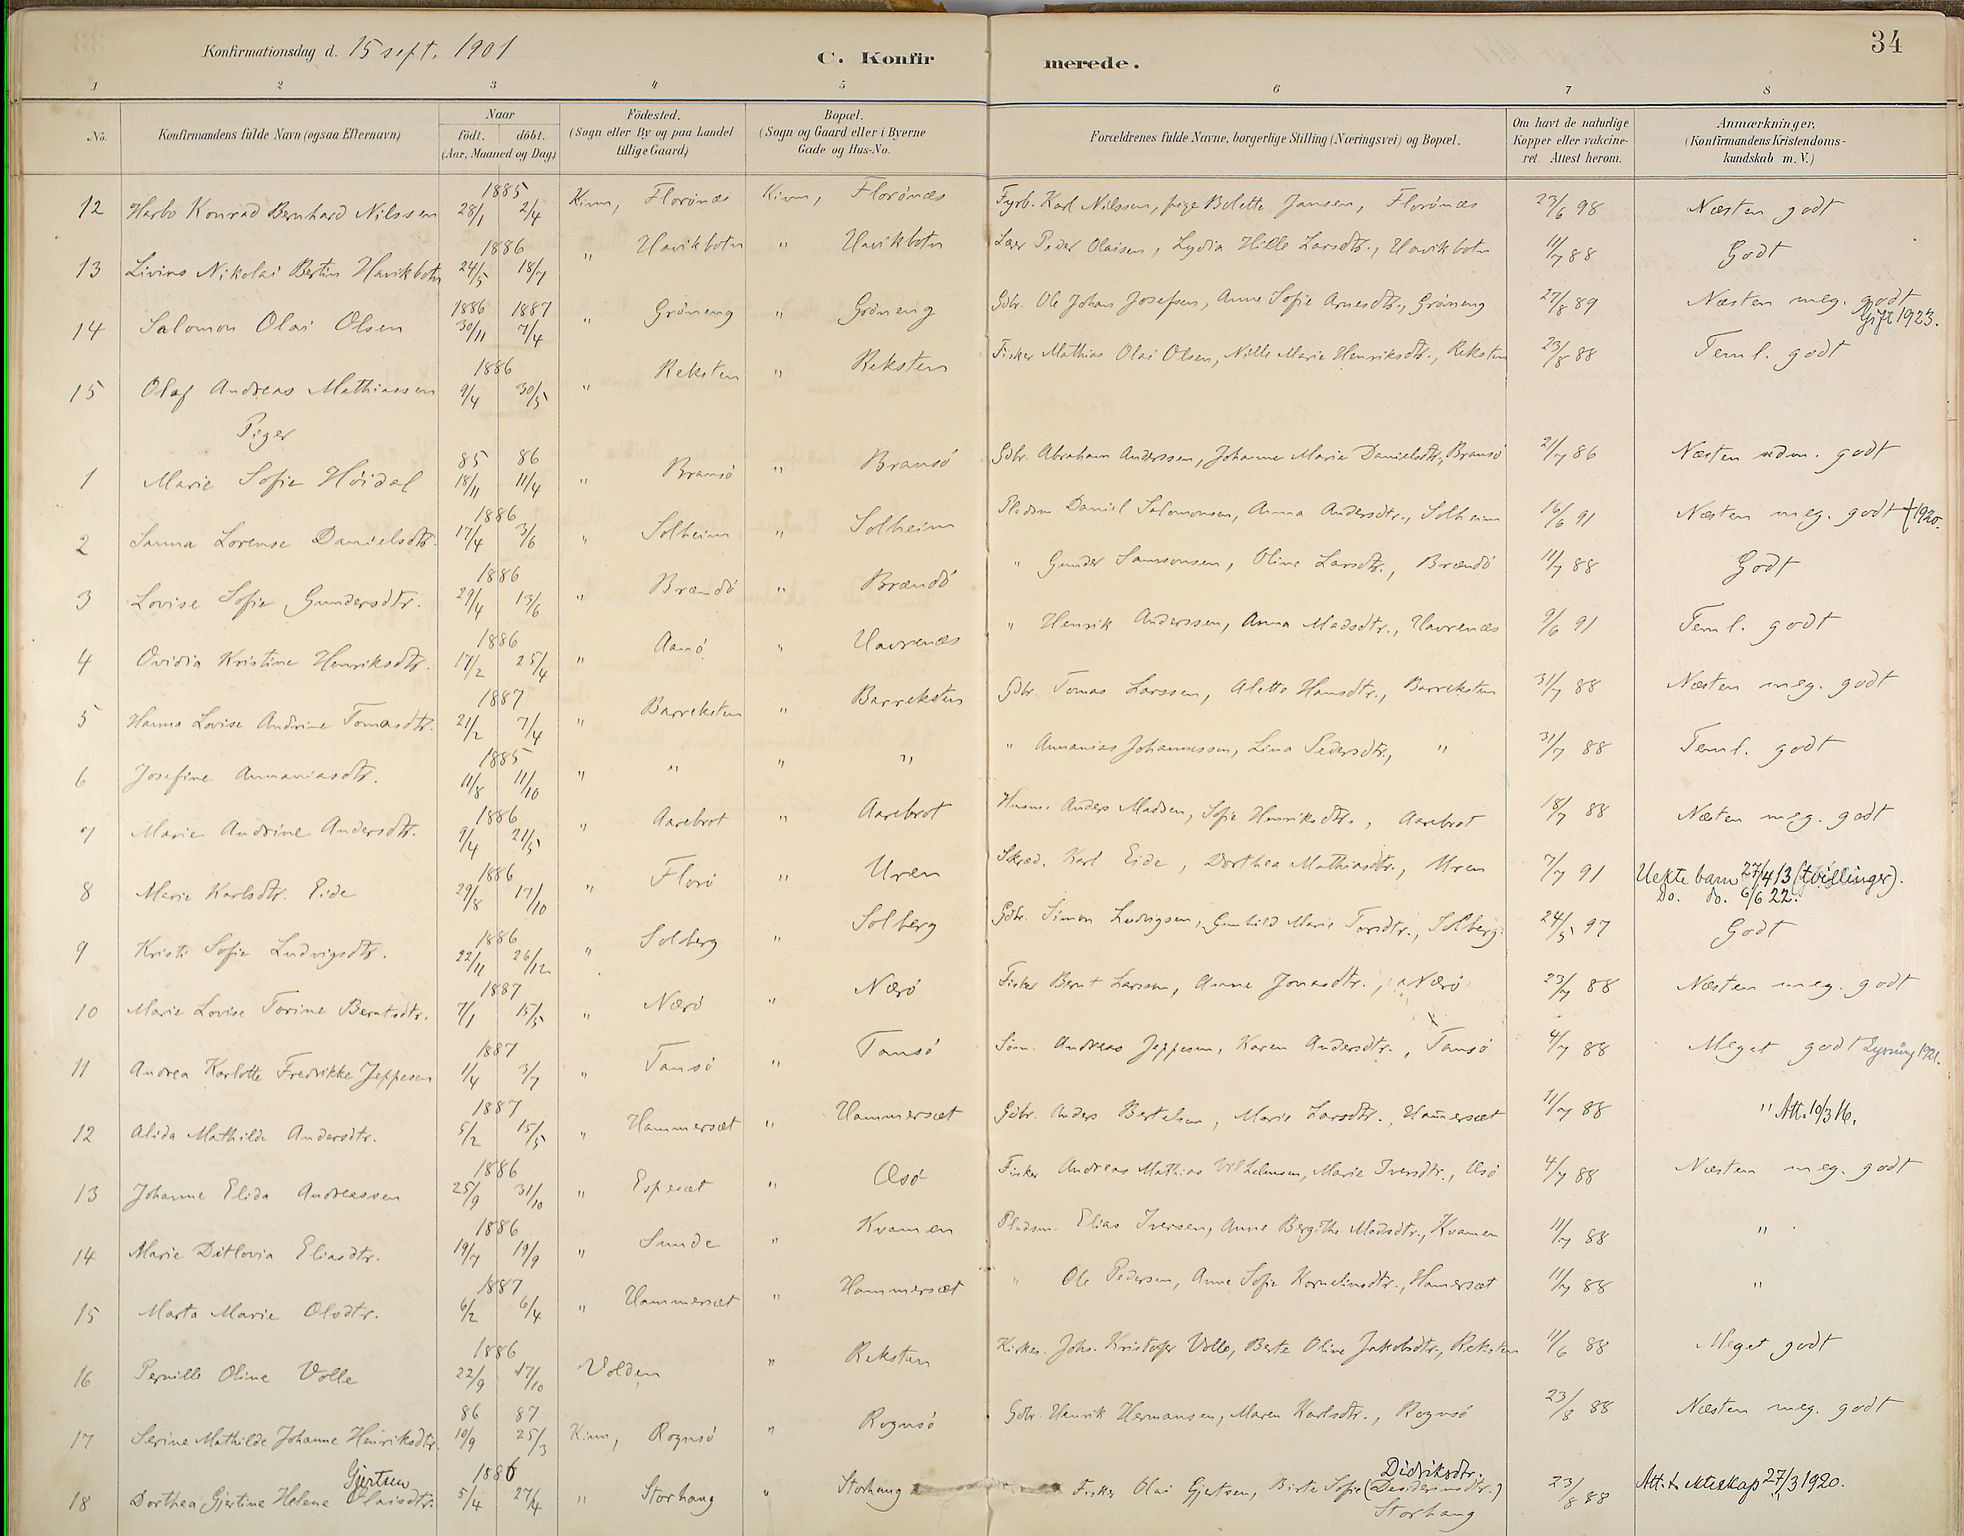 34
Konfirmationsdag d. 15 sept. 1901
C. Konfirmerede.
1 2 3 4 5 6 7 8
No. Konfirmandens fulde Navn (ogsaa Efternavn) Naar født. døbt. (Aar, Maaned og Dag) Fødested. (Sogn eller By og paa Landet tillige Gaard) Bopæl. (Sogn og Gaard eller i Byerne Gade og Hus-No. Forældrenes fulde Navne, borgerlige Stilling (Næringsvei) og Bopæl. Om havt de naturlige Kopper eller vakcineret. Attest herom. Anmærkninger, (Konfirmandens Kristendomskundskab m. V.)
12 Harbo Konrad Bernhard Nilssen 1885 28/1 2/4 Kinn, Florønæs Kinn, Florønæs Fyrb. Karl Nilssen, pige Bolette Jansen, Florønæs 27/6 98 Næsten godt
13 Livins Nikolai Bertin Havikbotn 1886 24/5 18/7 " Havikbotn " Havikbotn Peder Olaisen, Lydia Hille Larsdtr., Havikbotn 11/7 88 Godt
14 Salomon Olai Olsen 1886 30/11 1887 7/4 " Grøneng " Grøneng Gdbr. Ole Johan Josefsen, Anne Sofie Arnesdtr., Grøneng 27/8 89 Næsten meg. godt Gift 1923.
15 Olaf Andreas Mathiassen 1886 9/4 30/5 " Reksten " Reksten Fisker Mathias Olai Olsen, Nille Marie Henriksdtr., Reksten 23/8 88 Teml. godt
Piger
1 Marie Sofie Høidal 85 18/11 86 11/4 " Bransø " Bransø Gdbr. Abraham Anderssen, Johanne Marie Danielsdtr., Bransø 21/7 86 Næsten udm. godt
2 Sanna Lorense Danielsdtr. 1886 17/4 3/6 " Solheim " Solheim Pladsm. Daniel Salomonsen, Anna Andersdtr., Solheim 16/6 91 Næsten meg. godt † 1920.
3 Lovise Sofie Gundersdtr. 1886 29/4 13/6 " Brændø " Brændø " Gunder Samsonsen, Oline Larsdtr., Brændø 11/7 88 Godt
4 Ovidia Kristine Henriksdtr. 1886 17/2 25/4 " Aanø " Havrenæs " Henrik Anderssen, Anna Madsdtr., Havrenæs 9/6 91 Teml. godt
5 Hanna Lovise Andrine Tomasdtr. 1887 21/2 7/4 " Barreksten " Barreksten Gdbr. Tomas Larssen, Alette Hansdtr., Barreksten 31/7 88 Næsten meg. godt
6 Josefine Annaniasdtr. 1885 11/8 11/10 " " " " " Annanias Johannessen, Lina Pedersdtr., " 31/7 88 Teml. godt
7 Marie Andrine Andersdtr. 1886 9/4 21/5 " Aarebrot " Aarebrot Husm. Anders Madsen, Sofie Henriksdtr., Aarebrot 18/7 88 Næsten meg. godt
8 Marie Karlsdtr. Eide 1886 29/8 17/10 " Florø " Uren Skræd. Karl Eide, Dorthea Mathiasdtr., Uren 7/7 91 Uekte barn 27/4 13 (tvillinger). Do. Do. 6/6 22.
9 Kristi Sofie Ludvigsdtr. 1886 22/11 26/12 " Solberg " Solberg Gdbr. Simon Ludvigsen, Gunhild Marie Torsdtr., Solberg. 24/5 97 Godt
10 Marie Lovise Torine Berntsdtr. 1887 7/1 15/5 " Nærø " Nærø Fisker Bernt Larssen, Anne Jonasdtr., Nærø 23/7 88 Næsten meg. godt
11 Andrea Karlotte Fredrikke Jeppesen 1887 1/4 3/7 " Tansø " Tansø Andreas Jeppesen, Karen Andersdtr., Tansø 4/7 88 Meget godt Lysning 1921.
12 Alida Mathilde Andersdtr. 1887 5/2 15/5 " Hammersæt " Hammersæt Gdbr. Anders Bertelsen, Marie Larsdtr., Ham̄ersæt 11/7 88 " Att. 10/3 16.
13 Johanne Elida Andreassen 1886 25/9 31/10 " Espesæt " Æsø Fisker Andreas Mathias Vilhelmsen, Marie Iversdtr., Æsø 4/7 88 Næsten meg. godt
14 Marie Ditlovia Eliasdtr. 1886 19/7 19/9 " Sunde " Kvamen Pladsm. Elias Iversen, Anne Bergithe Madsdtr., Kvamen 11/7 88 "
15 Marta Marie Olsdtr. 1887 6/2 6/4 " Hammersæt " Hammersæt " Ole Pedersen, Anne Sofie Korneliusdtr., Hamersæt 11/7 88 "
16 Pernille Oline Volle 1886 22/9 17/10 Volden " Reksten Kirkes. Johs. Kristofer Volle, Berte Oline Jakobsdtr., Reksten 11/6 88 Meget godt
17 Serine Mathilde Johanne Henriksdtr. 86 10/9 87 25/3 Kinn, Rognsø " Rognsø Gdbr. Henrik Hermansen, Maren Karlsdtr., Rognsø 23/8 88 Næsten meg. godt
18 Dorthea Gjertine Helene Olaisdtr. Gjertsen 1886 5/4 27/4 " Storhaug " Storhaug Fisker Olai Gjertsen, Birte Sofie (Desideriusdtr.) Didriksdtr. Storhaug 23/8 88 Att. t. ekteskap 27/3 1920.